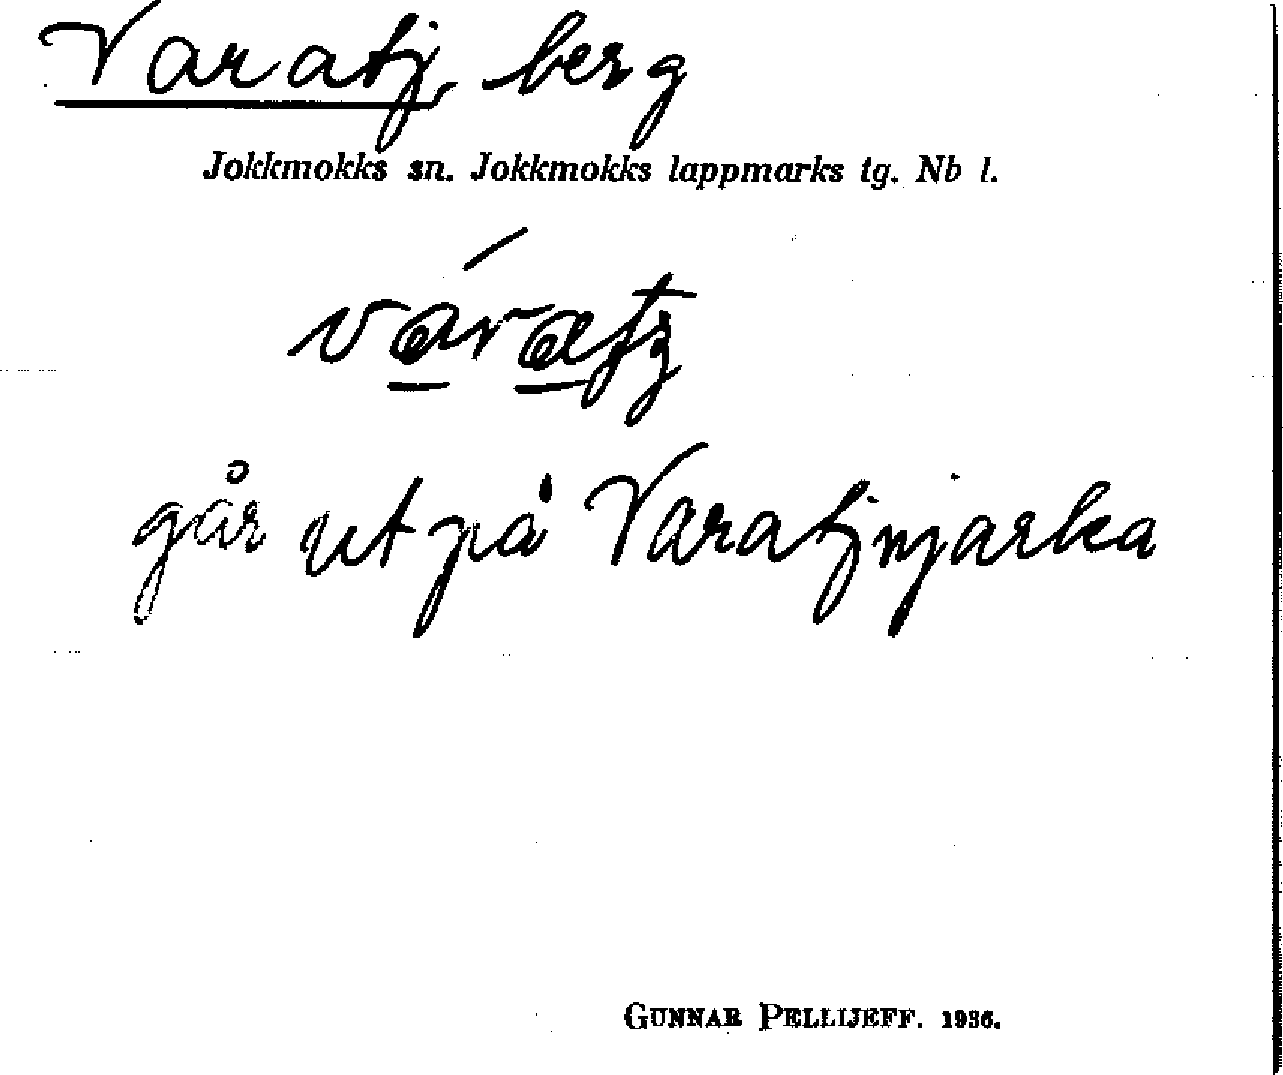 Varatj, berg
Jokkmokks sn. Jokkmokks lappmarks tg. Nb l.
går ut på Varatjnjarka
GUNNAR PELLIJEFF. 1936.